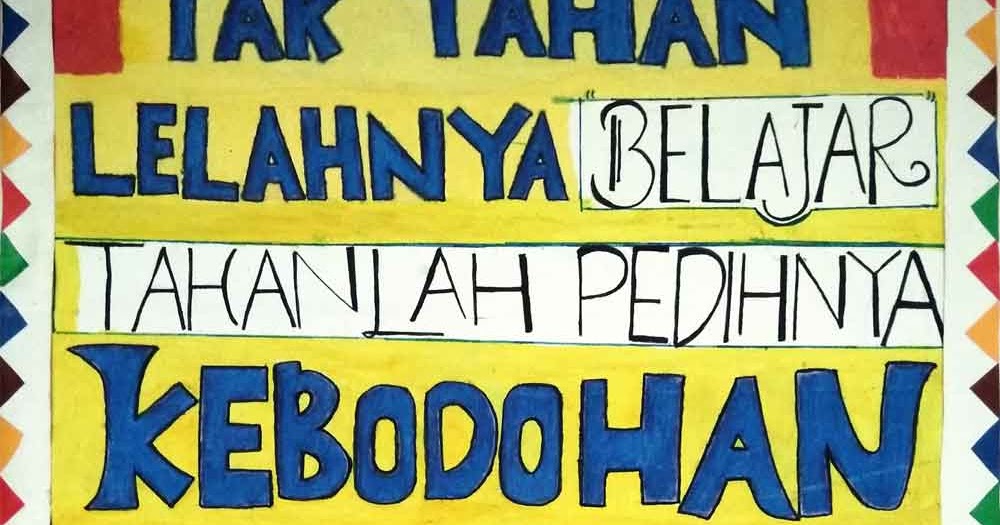 TAK TAHAN
LELAHNYA "BELAJAR"
TAHANLAH PEDIHNYA
KEBODOHAN